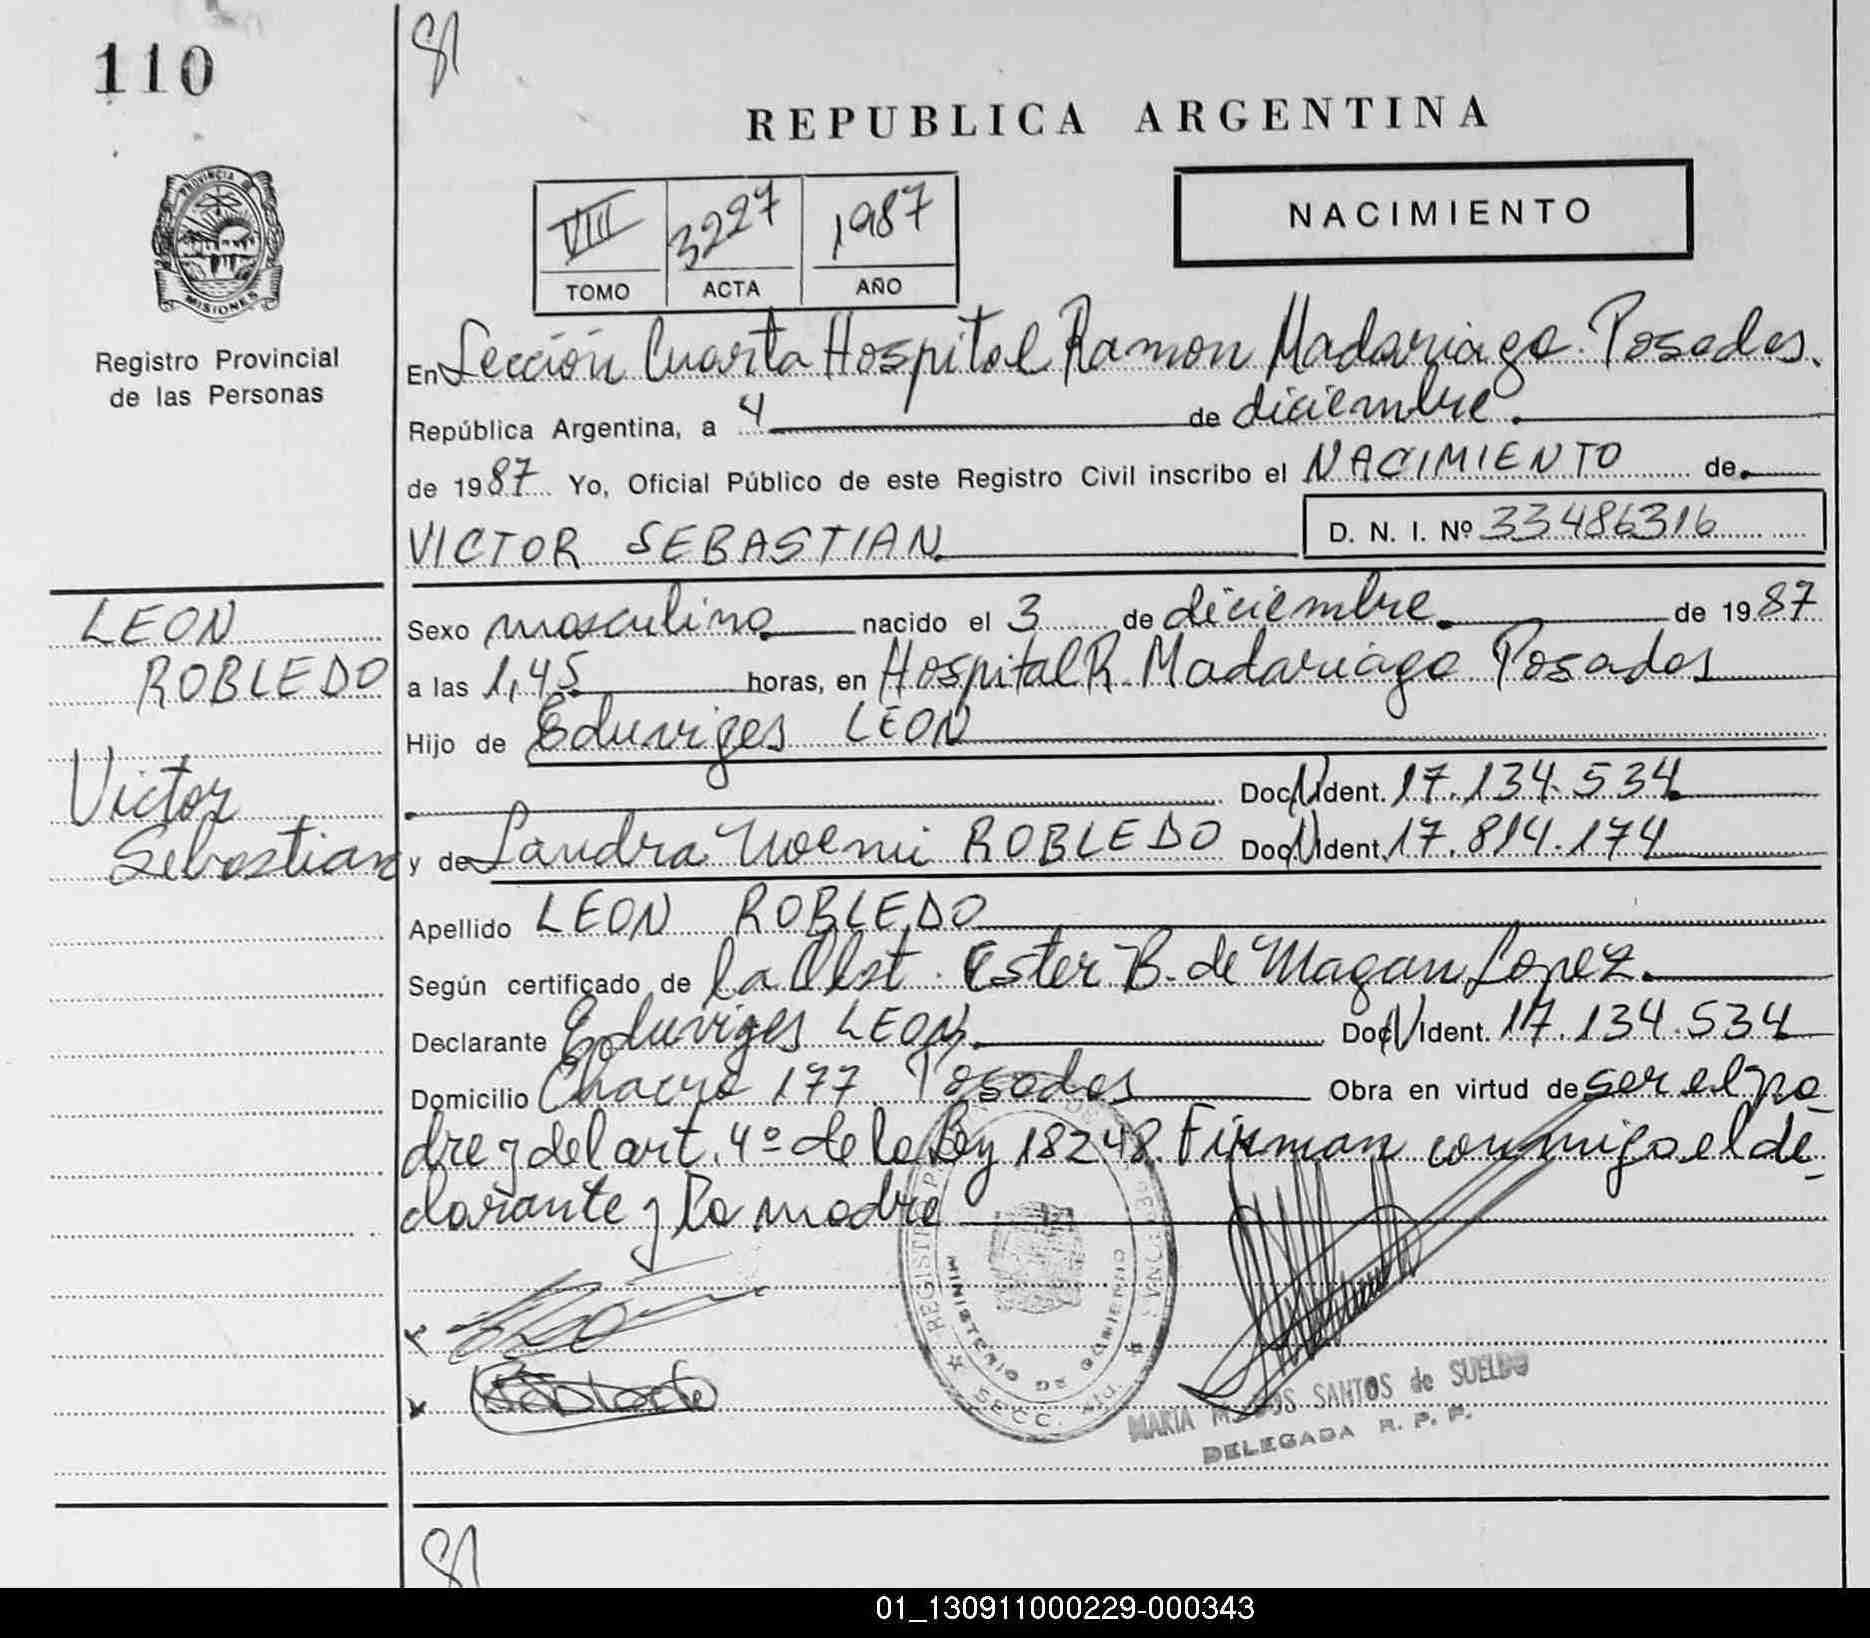 110
81
REPUBLICA ARGENTINA
PROVINCIA
MISIONES
Registro Provincial
de las Personas
VIII 3227 1987
TOMO ACTA AÑO
NACIMIENTO
En Sección Cuarta Hospital Ramon Madariaga. Posadas.
República Argentina, a 4 de diciembre
de 1987 Yo, Oficial Público de este Registro Civil inscribo el NACIMIENTO de
VICTOR SEBASTIAN D. N. I. Nº 33486316
LEON
ROBLEDO
Victor
Sebastian
Sexo masculino nacido el 3 de diciembre de 1987
a las 1,45 horas, en Hospital R. Madariaga Posadas
Hijo de Eduviges LEON
Doc. Ident. 17.134.534
y de Sandra Noemi ROBLEDO Doc. Ident. 17.814.174
Apellido LEON ROBLEDO
Según certificado de la Obst. Ester B. de Magan Lopez.
Declarante Eduviges LEON Doc. Ident. 17.134.534
Domicilio Chacra 177 Posadas Obra en virtud de ser el pa
dre y del art. 4º de la Ley 18248. Firman conmigo el de
clarante y la madre
MINISTERIO DE GOBIERNO
SECC. 4ta.
MARIA M. DOS SANTOS de SUELDO
DELEGADA R. P. P.
81
01_130911000229-000343